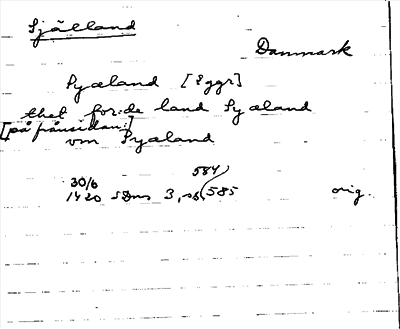 Själland
Danmark
Syæland [2 ggr]
thet for:de land Syæland
[på frånsidan:]
vm Syæland
584
30/6
1420 SDns 3, s. 585
orig.